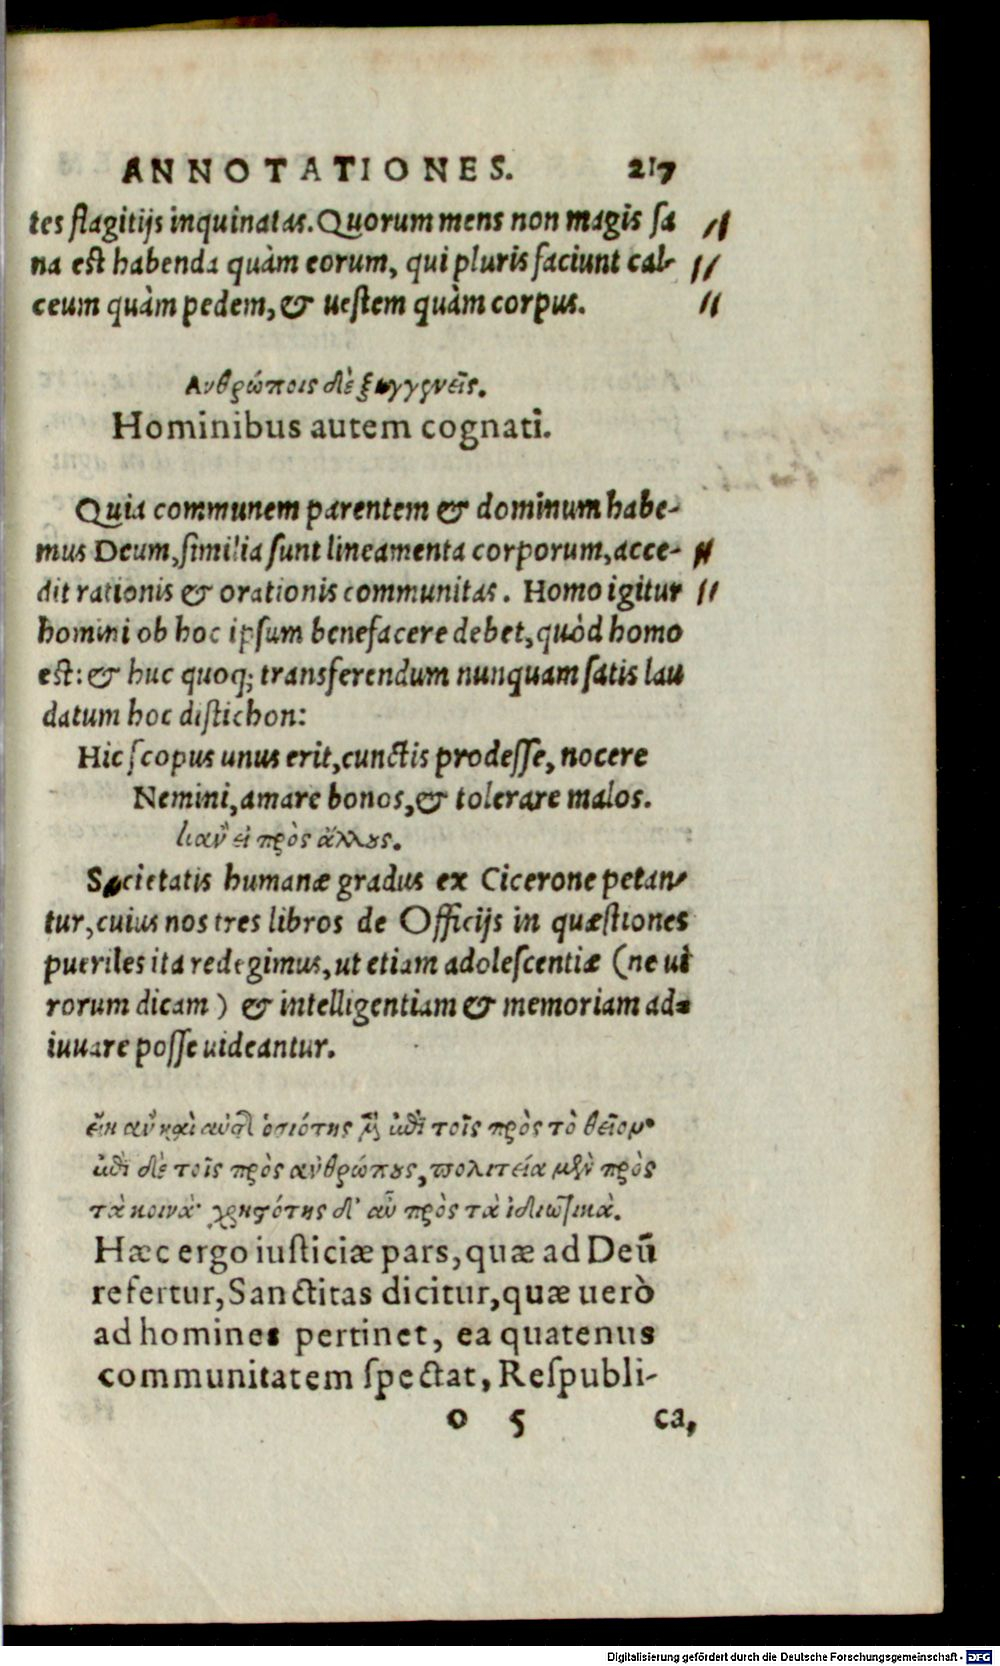 ANNOTATIONES. 217
tes flagitijs inquinatas. Quorum mens non magis sa
na est habenda quàm eorum, qui pluris faciunt cal-
ceum quàm pedem, & uestem quàm corpus.
Ανθρώποις δὲ ξυγγενεῖς.
Hominibus autem cognati.
Quia communem parentem & dominum habe-
mus Deum, similia sunt lineamenta corporum, acce-
dit rationis & orationis communitas. Homo igitur
homini ob hoc ipsum benefacere debet, quòd homo
est: & huc quoq; transferendum nunquam satis lau
datum hoc distichon:
Hic scopus unus erit, cunctis prodesse, nocere
Nemini, amare bonos, & tolerare malos.
πρὸς ἄλλους.
Societatis humanæ gradus ex Cicerone petan-
tur, cuius nos tres libros de Officijs in quæstiones
pueriles ita redegimus, ut etiam adolescentiæ (ne ui
rorum dicam) & intelligentiam & memoriam ad-
iuuare posse uideantur.
εἴη ἂν καὶ ὁσιότης μὲν ἐπὶ τοῖς πρὸς τὸ θεῖον·
ἐπὶ δὲ τοῖς πρὸς ἀνθρώπους, πολιτεία μὲν πρὸς
τὰ κοινά· χρηστότης δ' αὖ πρὸς τὰ ἰδιωτικὰ.
Hæc ergo iusticiæ pars, quæ ad Deũ
refertur, Sanctitas dicitur, quæ uerò
ad homines pertinet, ea quatenus
communitatem spectat, Respubli-
o 5 ca,
Digitalisierung gefördert durch die Deutsche Forschungsgemeinschaft - DFG